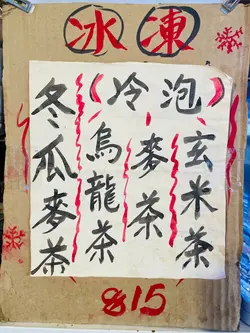 冰凍
(冷泡)
玄米茶
麥茶
烏龍茶
冬瓜麥茶
$15